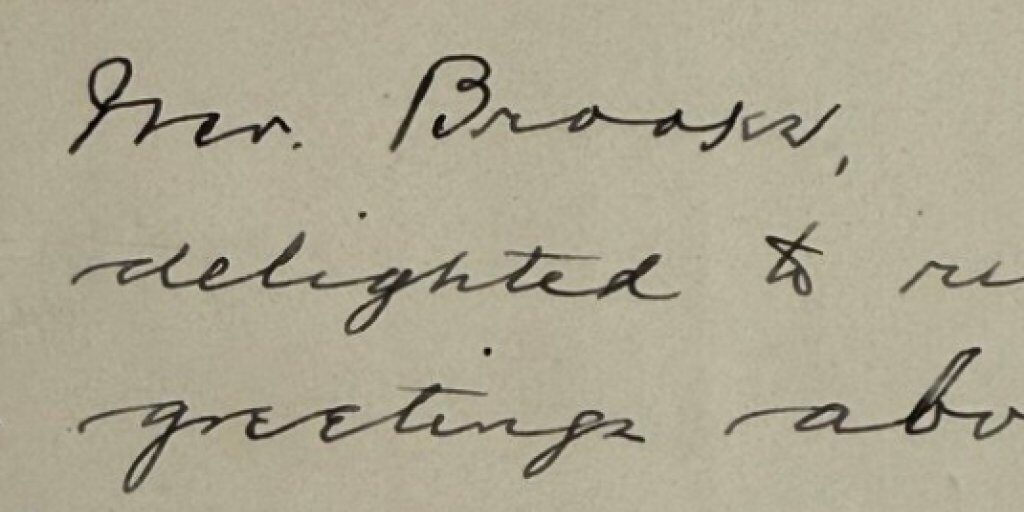 Mr. Brooks,
delighted to re
greetings abo